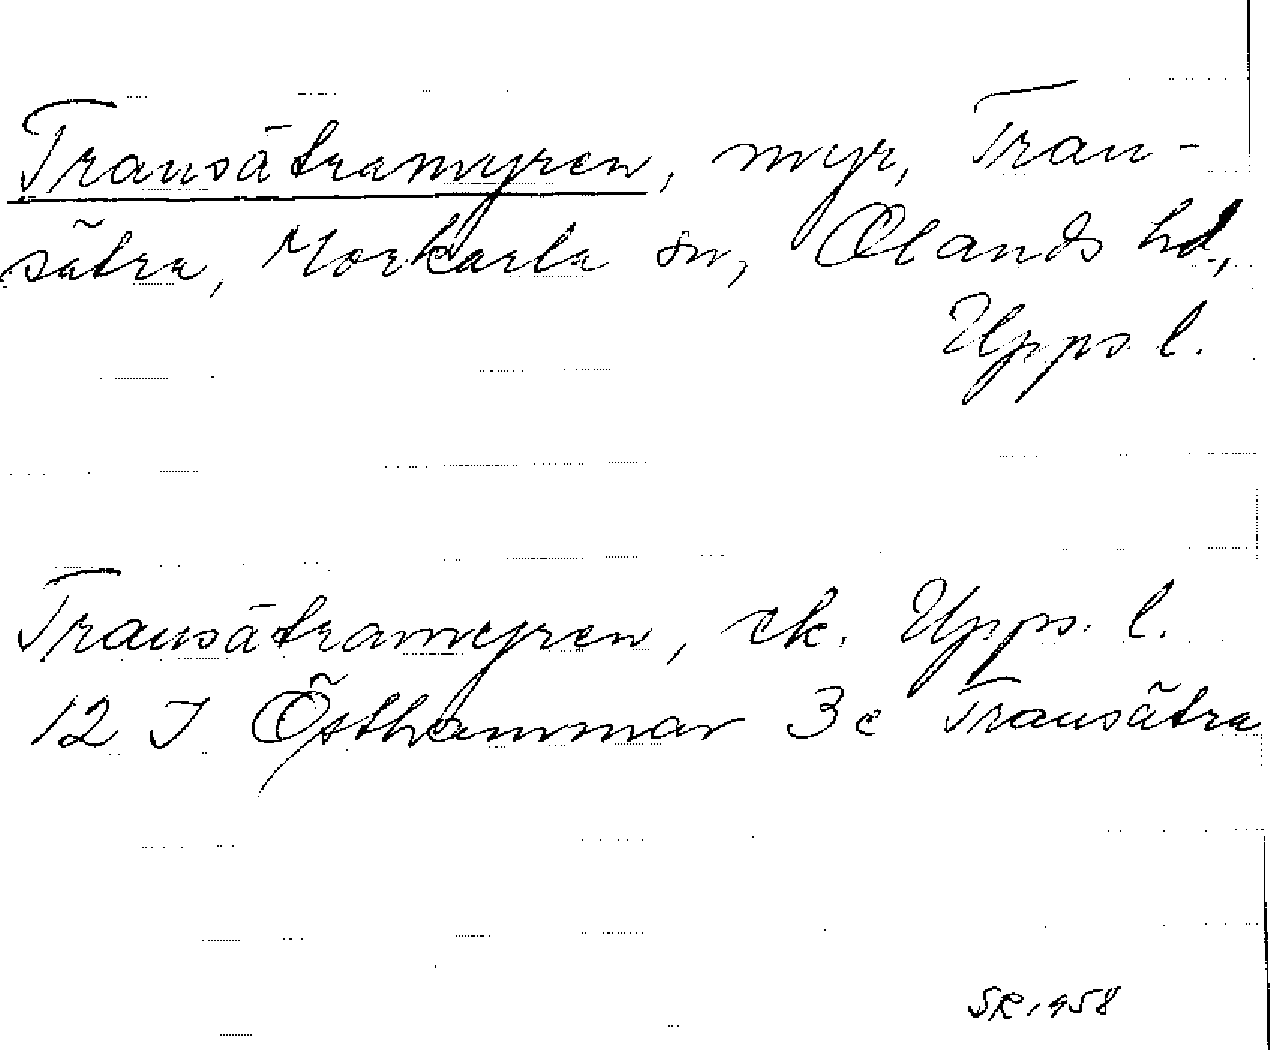 Transätramyren, myr, Tran-
sätra, Morkarla sn, Olands hd,
Upps l.
Transätramyren, ek. Upps. l.
12 I Östhammar 3 c Transätra
SR 1958